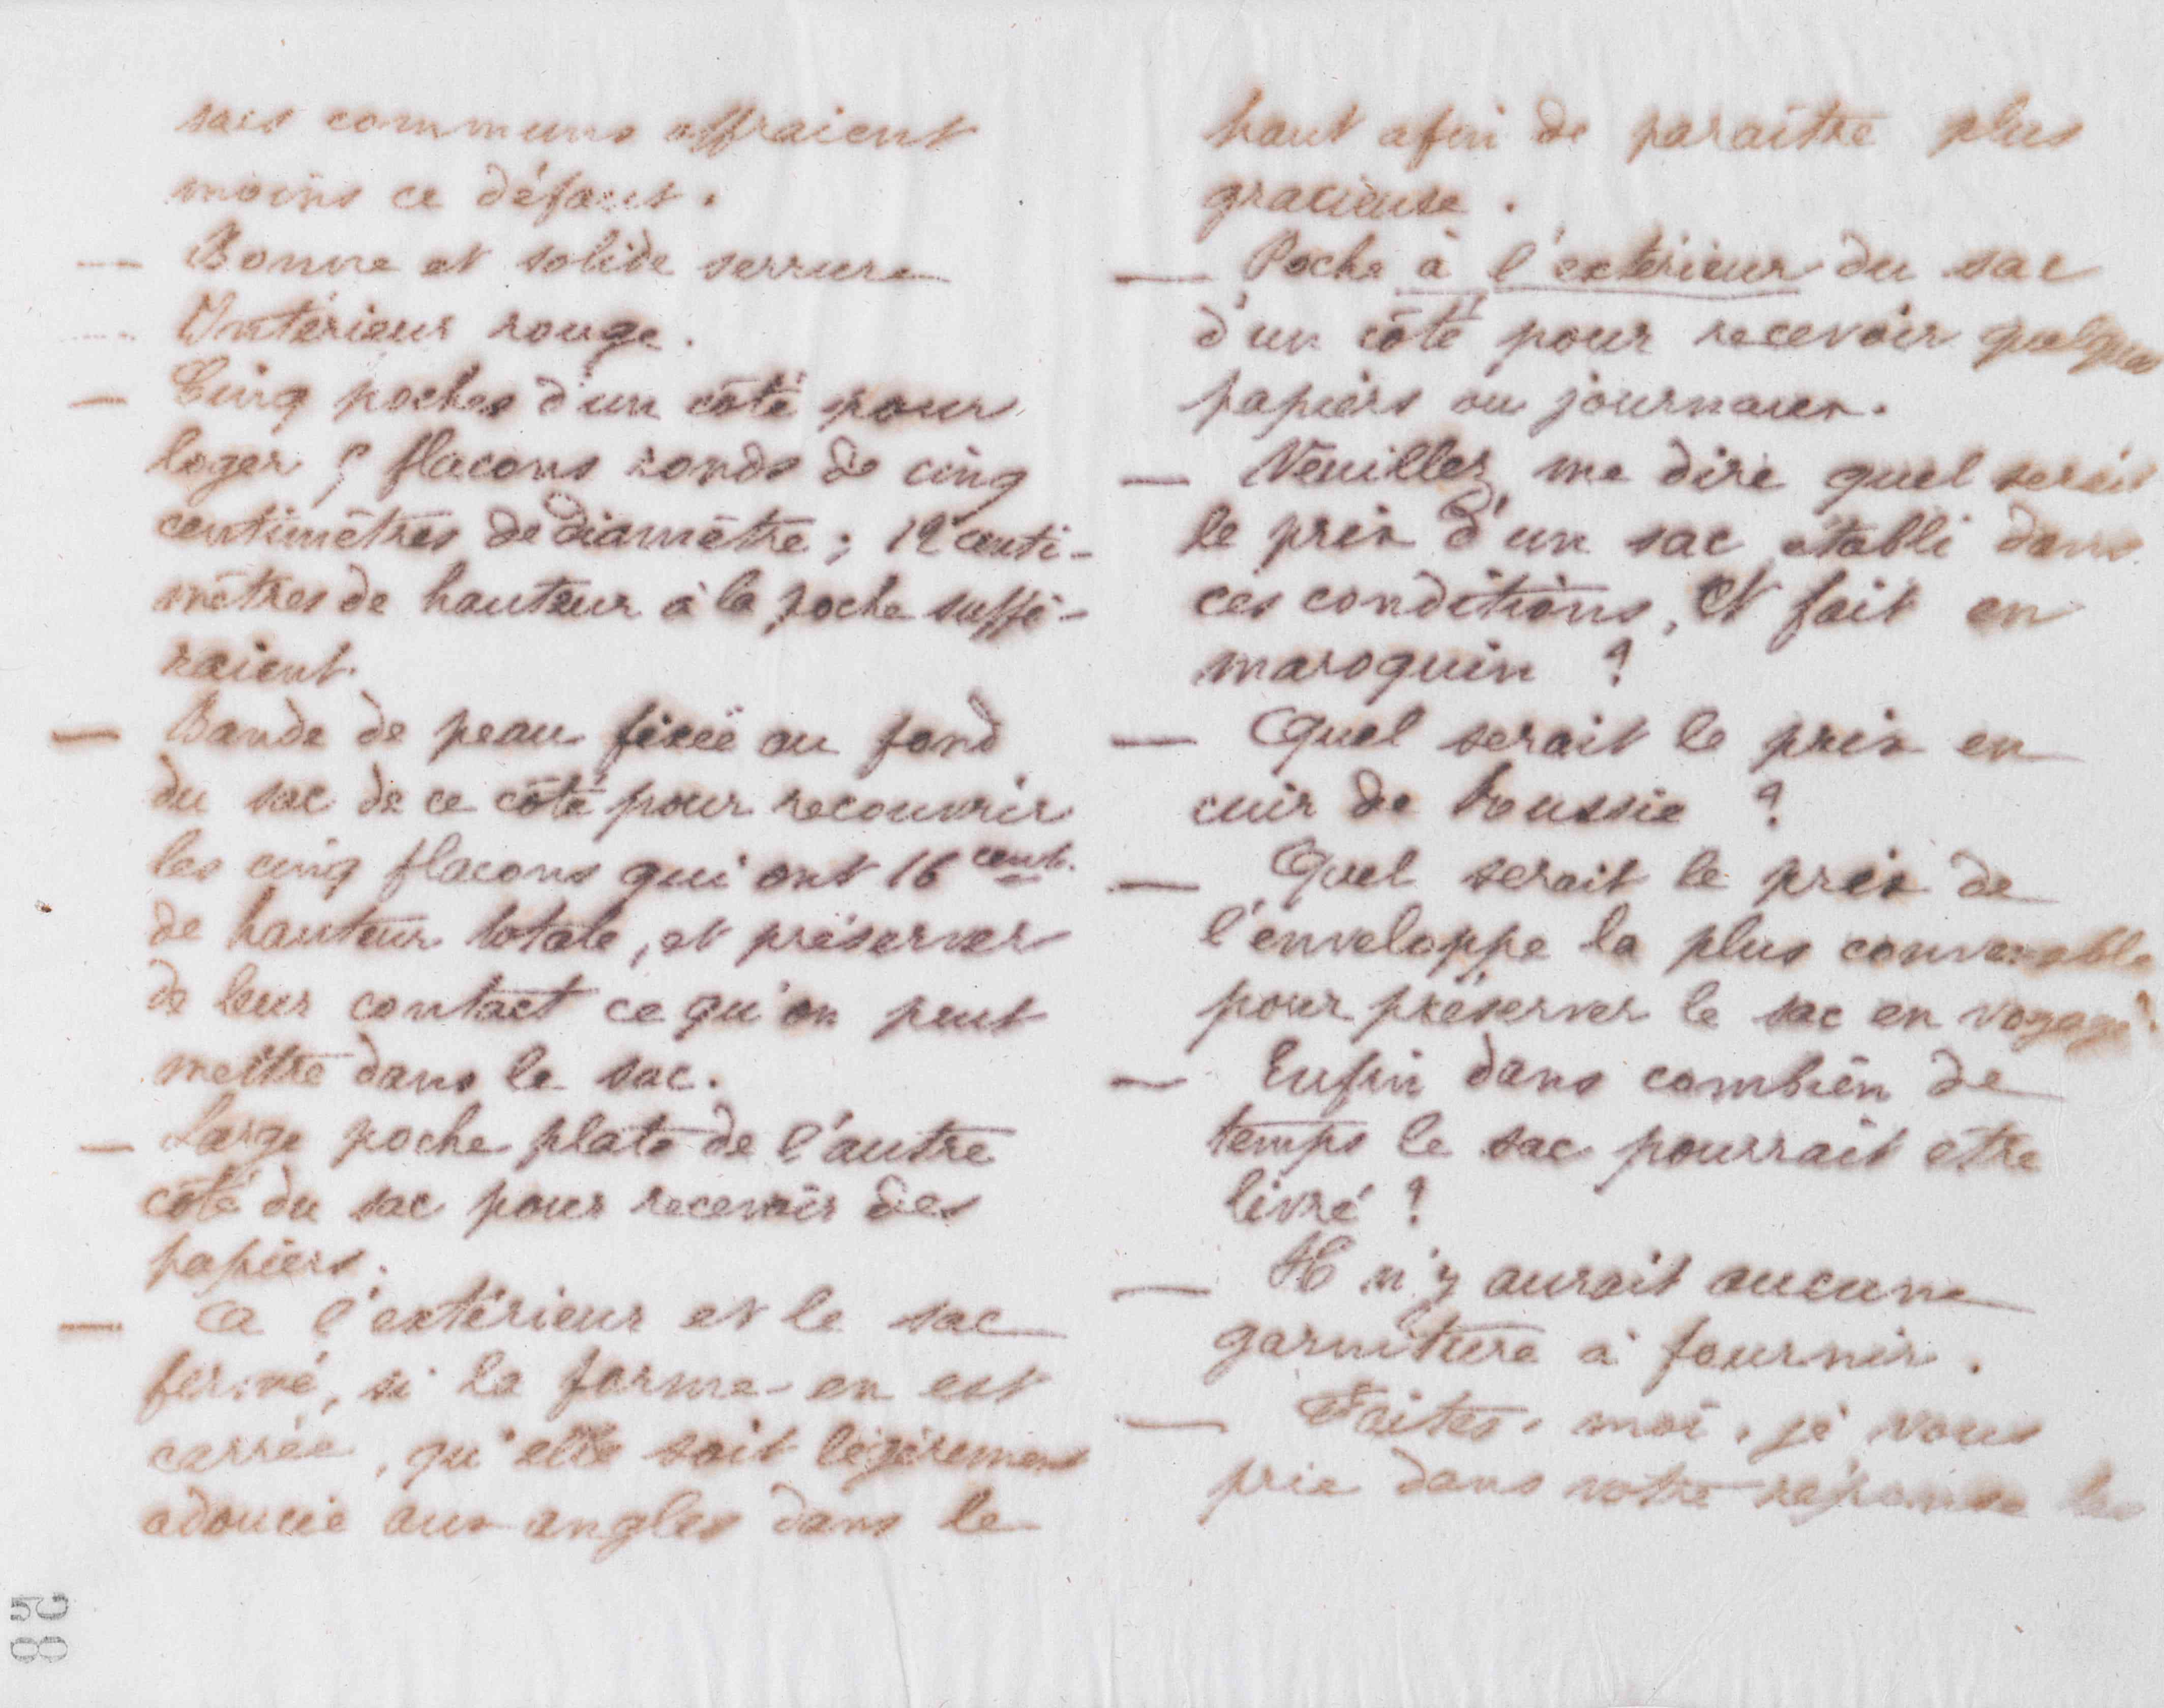 sacs communs offraient
moins ce défaut.
— Bonne et solide serrure
— Intérieur rouge.
— Cinq poches d'un côté pour
loger 5 flacons ronds de cinq
centimètres de diamètre ; 12 centi-
mètres de hauteur à la poche suffi-
raient.
— Bande de peau fixée au fond
du sac de ce côté pour recouvrir
les cinq flacons qui ont 16 cent.
de hauteur totale, et préserver
de leur contact ce qu'on peut
mettre dans le sac.
— Large poche plate de l'autre
côté du sac pour recevoir des
papiers.
— A l'extérieur et le sac
fermé, si la forme en est
carrée, qu'elle soit légèrement
adoucie aux angles dans le
haut afin de paraître plus
gracieuse.
— Poche à l'extérieur du sac
d'un côté pour recevoir quelques
papiers ou journaux.
— Veuillez me dire quel serait
le prix d'un sac établi dans
ces conditions, et fait en
maroquin ?
— Quel serait le prix en
cuir de Roussie ?
— Quel serait le prix de
l'enveloppe la plus convenable
pour préserver le sac en voyage ?
— Enfin dans combien de
temps le sac pourrait être
livré ?
— Il n'y aurait aucune
garniture à fournir.
— Faites-moi, je vous
prie dans votre réponse les
82